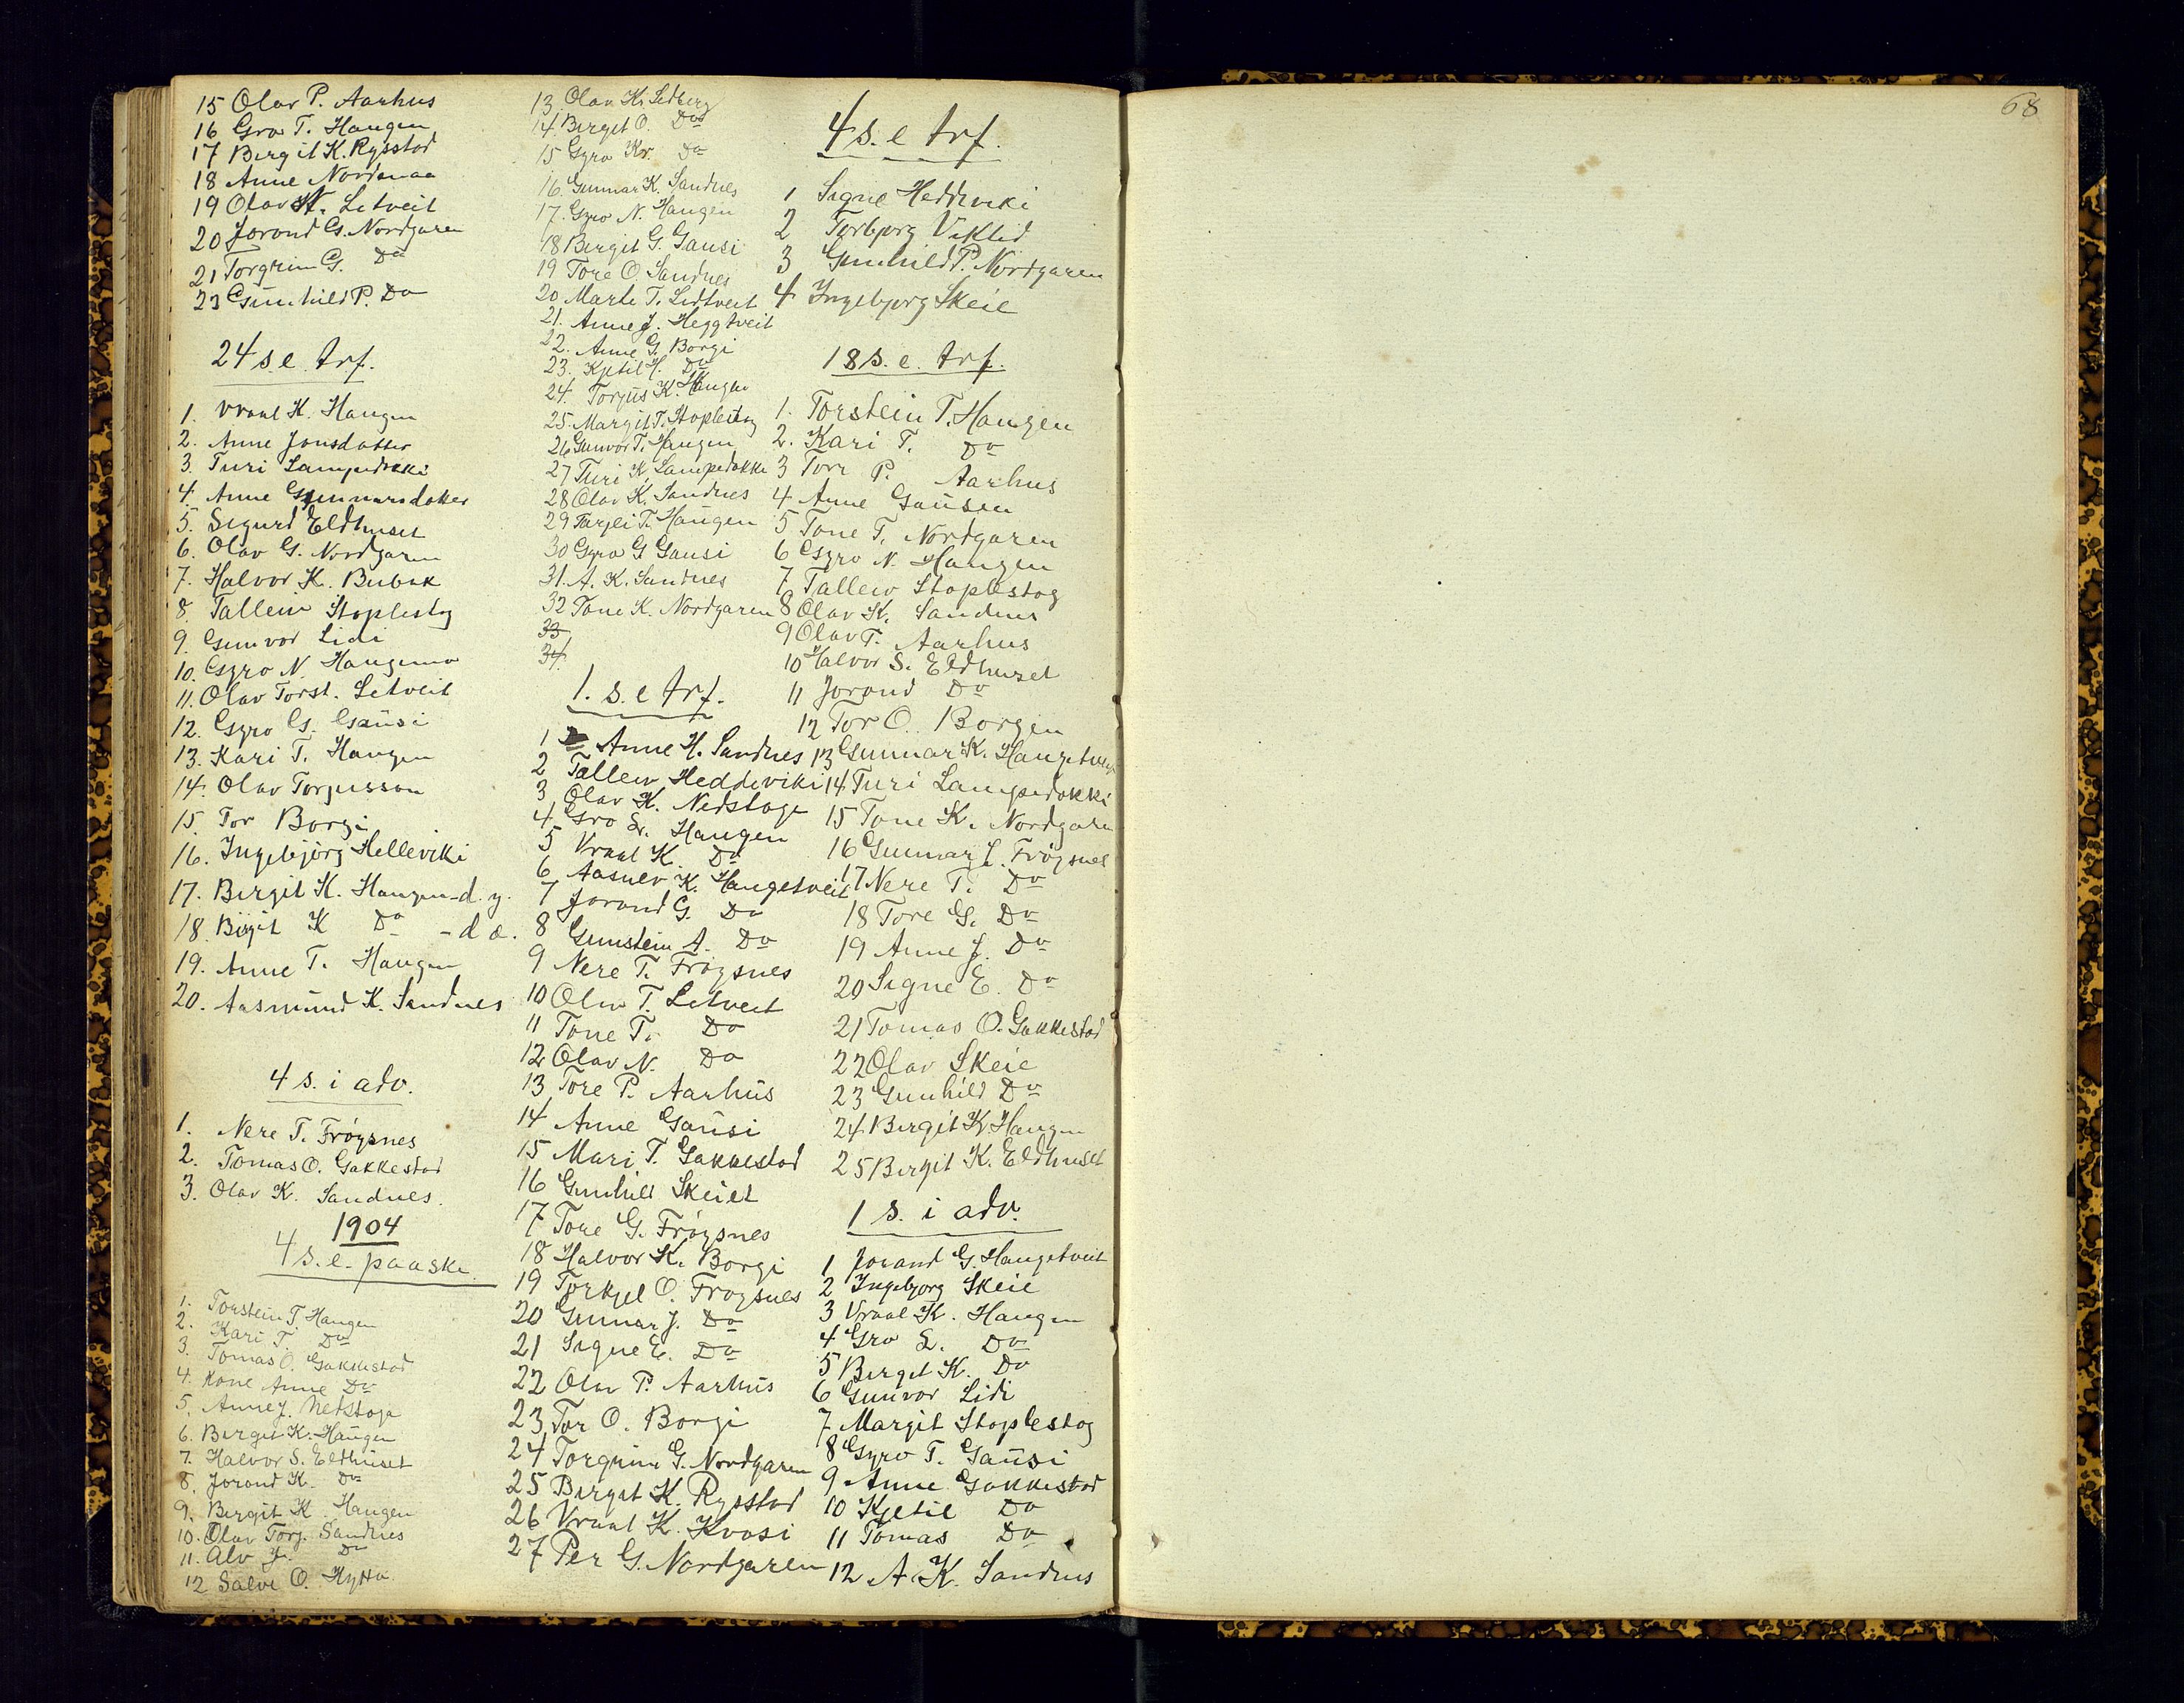 15 Olav P. Aarhus
16 Gro T. Haugen
17 Birgit K. Rysstad
18 Anne Nordenaa
19 Olav N. Litveit
20 Jorand G. Nordgaren
21 Torgrim G. Do
23 Gunhild P. Do
24 s. e. trf.
1. Vraal K. Haugen
2. Anne Jonsdatter
3. Turi Lampedokki
4. Anne Gunnarsdotter
5. Sigurd Eldhuset
6. Olav G. Nordgaren
7. Halvor K. Bubak
8. Talleiv Stoplestog
9. Gunvor Lidi
10. Gyro N. Haugen
11. Olav Torst. Litveit
12. Gyro G. Gausi
13. Kari T. Haugen
14. Olav Torjusson
15 Tor Borgi
16. Ingebjörg Helleviki
17. Birgit K. Haugen - d. y.
18. Birgit K Do - d æ.
19. Anne T. Haugen
20. Aasmund K. Sandnes
4 s. i adv.
1. Nere T. Fröysnes
2. Tomas O. Gakkestad
3. Olav K. Sandnes.
1904
4 s. e. paaske
1. Torstein T Haugen
2. Kari T. Do
3. Tomas O. Gakkestad
4. Kone Anne Do
5. Anne J. Netstoga
6. Birgit K. Haugen
7. Halvor S. Eldhuset
8. Jorand K. Do
9. Birgit K Haugen
10. Olav Torj. Sandnes
11. Alv J. Do
12 Salve O.
13. Olav K. Lidberg
14. Birgit O. Do
15 Gyro Kr. Do
16. Gunnar K. Sandnes
17. Gyro N. Haugen
18 Birgit G. Gausi
19 Tore O. Sandnes
20 Marte T. Lidtveit
21. Anne J. Heggtveit
22. Anne G. Borgi
23. Kjetil H. Do
24. Torjus K. Haugen
25. Margit T. Stoplestog
26 Gunvor T. Haugen
27 Turi K. Lampedokke
28 Olav K. Sandnes
29 Tarjei T. Haugen
30 Gyro G Gausi
31. A. K. Sandnes
32 Tone K. Nordgaren
33
34
1. s. e trf.
1 Anne H. Sandnes
2 Talleiv Heddeviki
3 Olav K. Nedstoga
4 Gro S. Haugen
5 Vraal K. Do
6 Aasnev K. Haugetveit
7 Jorand G. Do
8 Gunstein A. Do
9 Nere T. Fröysnes
10 Olav T. Litveit
11 Tone T. Do
12 Olav N. Do
13 Tore P. Aarhus
14 Anne Gausi
15 Mari T. Gakkestad
16 Gunhild Skeiet
17 Tore G. Fröysnes
18 Halvor K. Borgi
19 Torkjel O. Froysnes
20 Gunnar J. Do
21 Signe E. Do
22 Olav P. Aarhus
23 Tor O. Borgi
24 Torgrim G. Nordgaren
25 Birgit K. Rysstad
26 Vraal K. Kvasi
27 Per G. Nordgaren
4 s. e trf.
1 Signe Heddeviki
2 Torbjorg Viklid
3 Gunhild P. Nordgaren
4 Ingebjorg Skeie
18 s. e. trf.
1. Torstein T. Haugen
2. Kari T. Do
3 Tore P. Aarhus
4 Anne Gausen
5 Tone T. Nordgaren
6 Gyro N. Haugen
7 Talleiv Stoplestog
8 Olav K. Sandnes
9 Olav P. Aarhus
10 Halvor S. Eldhuset
11 Jorand Do
12 Tor O. Borgen
13 Gunnar K. Haugetveit
14 Turi Lampedokki
15 Tone K. Nordgaren
16 Gunnar J. Fröysnes
17 Nere T. Do
18 Tore G. Do
19 Anne J. Do
20 Signe E. Do
21 Tomas O. Gakkestad
22 Olav Skeie
23 Gunhild Do
24 Birgit K. Haugen
25 Birgit K. Eldhuset
1 s. i adv.
1 Jorand G. Haugetveit
2 Ingebjorg Skeie
3 Vraal K. Haugen
4 Gro S. Do
5 Birgit K. Do
6 Gunvor Lidi
7 Margit Stoplestog
8 Gyro T. Gausi
9 Anne Gakkestad
10 Kjetil Do
11 Tomas Do
12 A. K. Sandnes
68